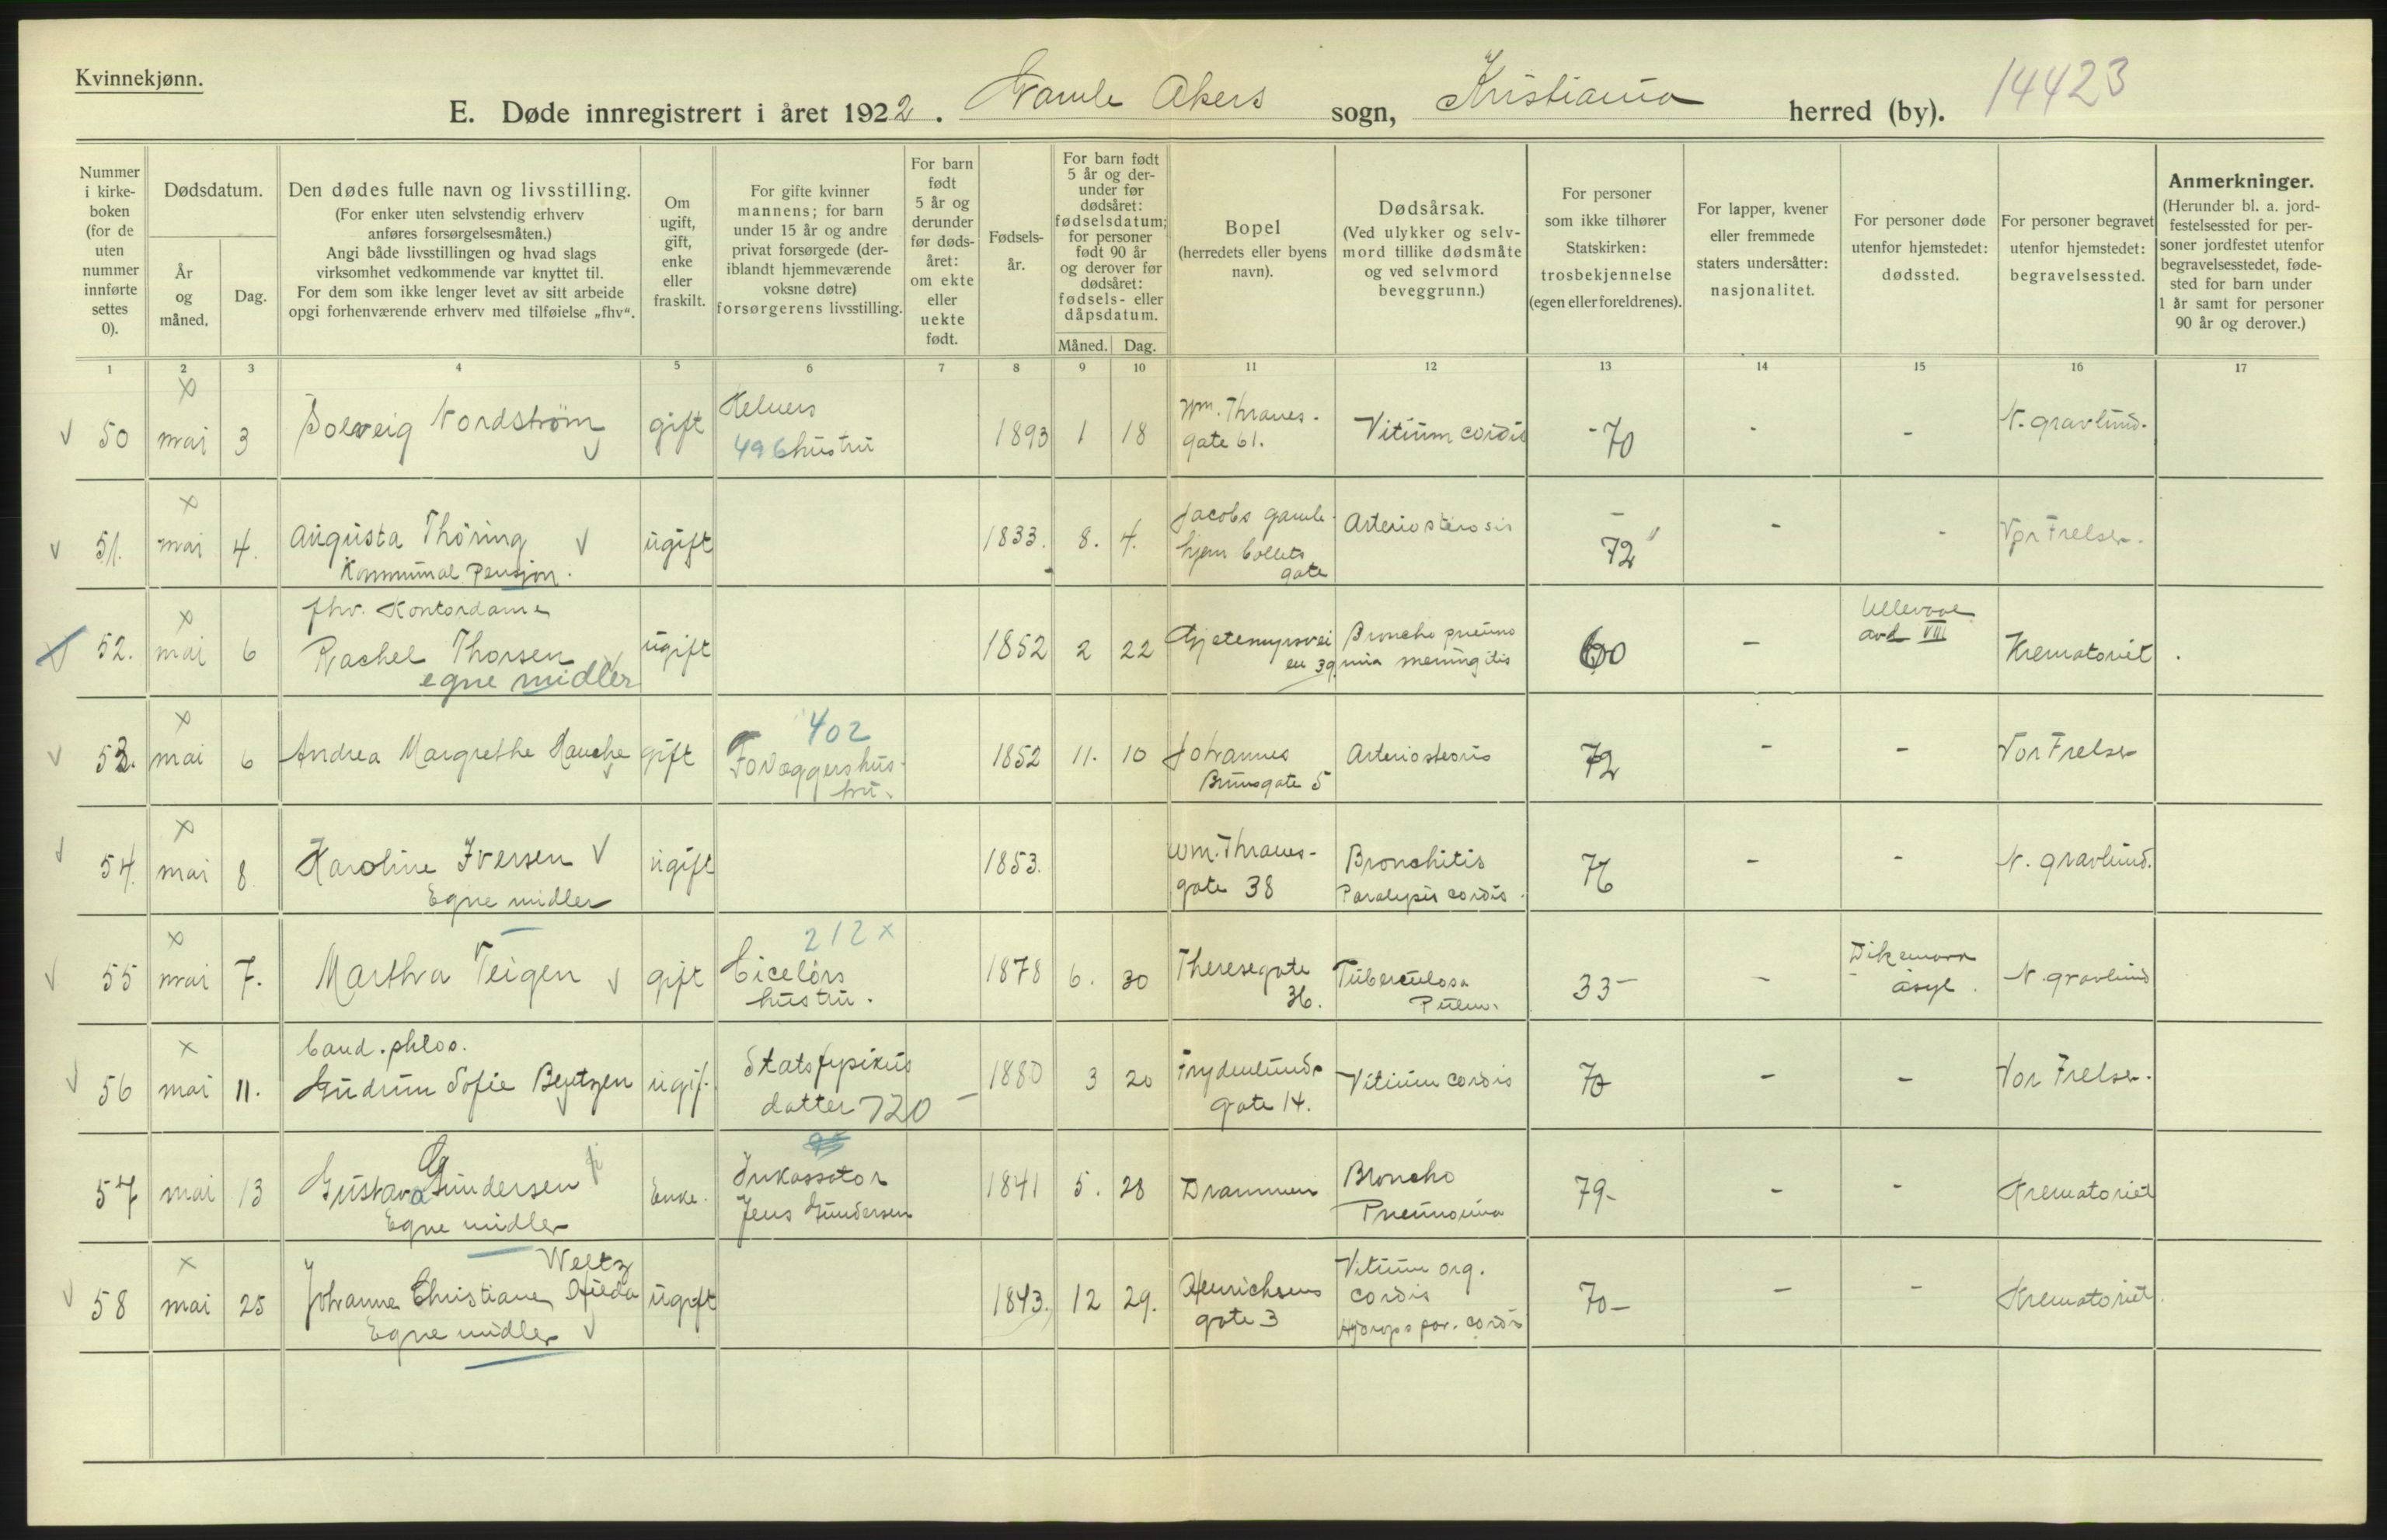 Kvinnekjønn.
E. Døde innregistrert i året 1922. Gamle Akers sogn, Kristiania herred (by). 14423
Nummer i kirke- boken (for de uten nummer innførte settes 0).
Dødsdatum.
År og måned.
Dag.
Den dødes fulle navn og livsstilling.
(For enker uten selvstendig erhverv anføres forsørgelsesmåten.)
Angi både livsstillingen og hvad slags virksomhet vedkommende var knyttet til.
For dem som ikke lenger levet av sitt arbeide opgi forhenværende erhverv med tilføielse „fhv“.
Om ugift, gift, enke eller fraskilt.
For gifte kvinner mannens; for barn under 15 år og andre privat forsørgede (der- iblandt hjemmeværende voksne døtre) forsørgerens livsstilling.
For barn født 5 år og derunder før døds- året: om ekte eller uekte født.
Fødsels- år.
For barn født 5 år og der- under før dødsåret: fødselsdatum; for personer født 90 år og derover før dødsåret: fødsels- eller dåpsdatum.
Måned. Dag.
Bopel
(herredets eller byens navn).
Dødsårsak.
(Ved ulykker og selv- mord tillike dødsmåte og ved selvmord beveggrunn.)
For personer som ikke tilhører Statskirken: trosbekjennelse (egen eller foreldrenes).
For lapper, kvener eller fremmede staters undersåtter: nasjonalitet.
For personer døde utenfor hjemstedet: dødssted.
For personer begravet utenfor hjemstedet: begravelsessted.
Anmerkninger.
(Herunder bl. a. jord- festelsessted for per- soner jordfestet utenfor begravelsesstedet, føde- sted for barn under 1 år samt for personer 90 år og derover.)
1 2 3 4 5 6 7 8 9 10 11 12 13 14 15 16 17
x
50 mai 3 Solveig Nordstrøm gift Kelners 496 hustru 1893 1 18 Wm. Thranes- gate 61. Vitium cordis - 70 - - N. gravlund.
x
51. mai 4. Augusta Thøring Kommunal Pensjon. ugift 1833. 8. 4. Jacobs gamle- hjem Collets gate - 72 - - Vor Frelser.
x
52. mai 6 fhv. Kontordame Rachel Thorsen egne midler ugift 1852 2 22 39 Broncho pneumo nia meningitis 60 - Ullevaal avd VIII Krematoriet.
x
53. mai 6 Andrea Margrethe Hauche gift 402 1852 11. 10 Johannes Brunsgate 5 72 - - Vor Frelser
x
54. mai 8 Karoline Iversen Egne midler ugift 1853. Wm. Thranes- gate 38 Bronchitis Paralysis cordis. 76 - - N. gravlund.
x
55 mai 7. Martha Teigen gift 212 x hustru. 1878 6. 30 Theresegate 36. Tuberculosa Pulm. 33- - Dikemark asyl. N. gravlund
x
56 mai 11. Cand. philos. Gudrun Sofie Bentzen ugif. Statsfysikus datter 720 - 1880 3 20 Frydenlunds gate 14. Vitium cordis 70 - - Vor Frelser.
57 mai 13 Gustava Gundersen Egne midler Enke. Inkassator Jens Gundersen 1841 5. 28 Drammen Broncho Pneumonia 79- - - Krematoriet
x
58 mai 25 Johanne Christiane Weltz Egne midler ugift 1843. 12 29. Henrichsens gate 3 Vitium org. cordis Hydrops par. cordis 70- - - Krematoriet.